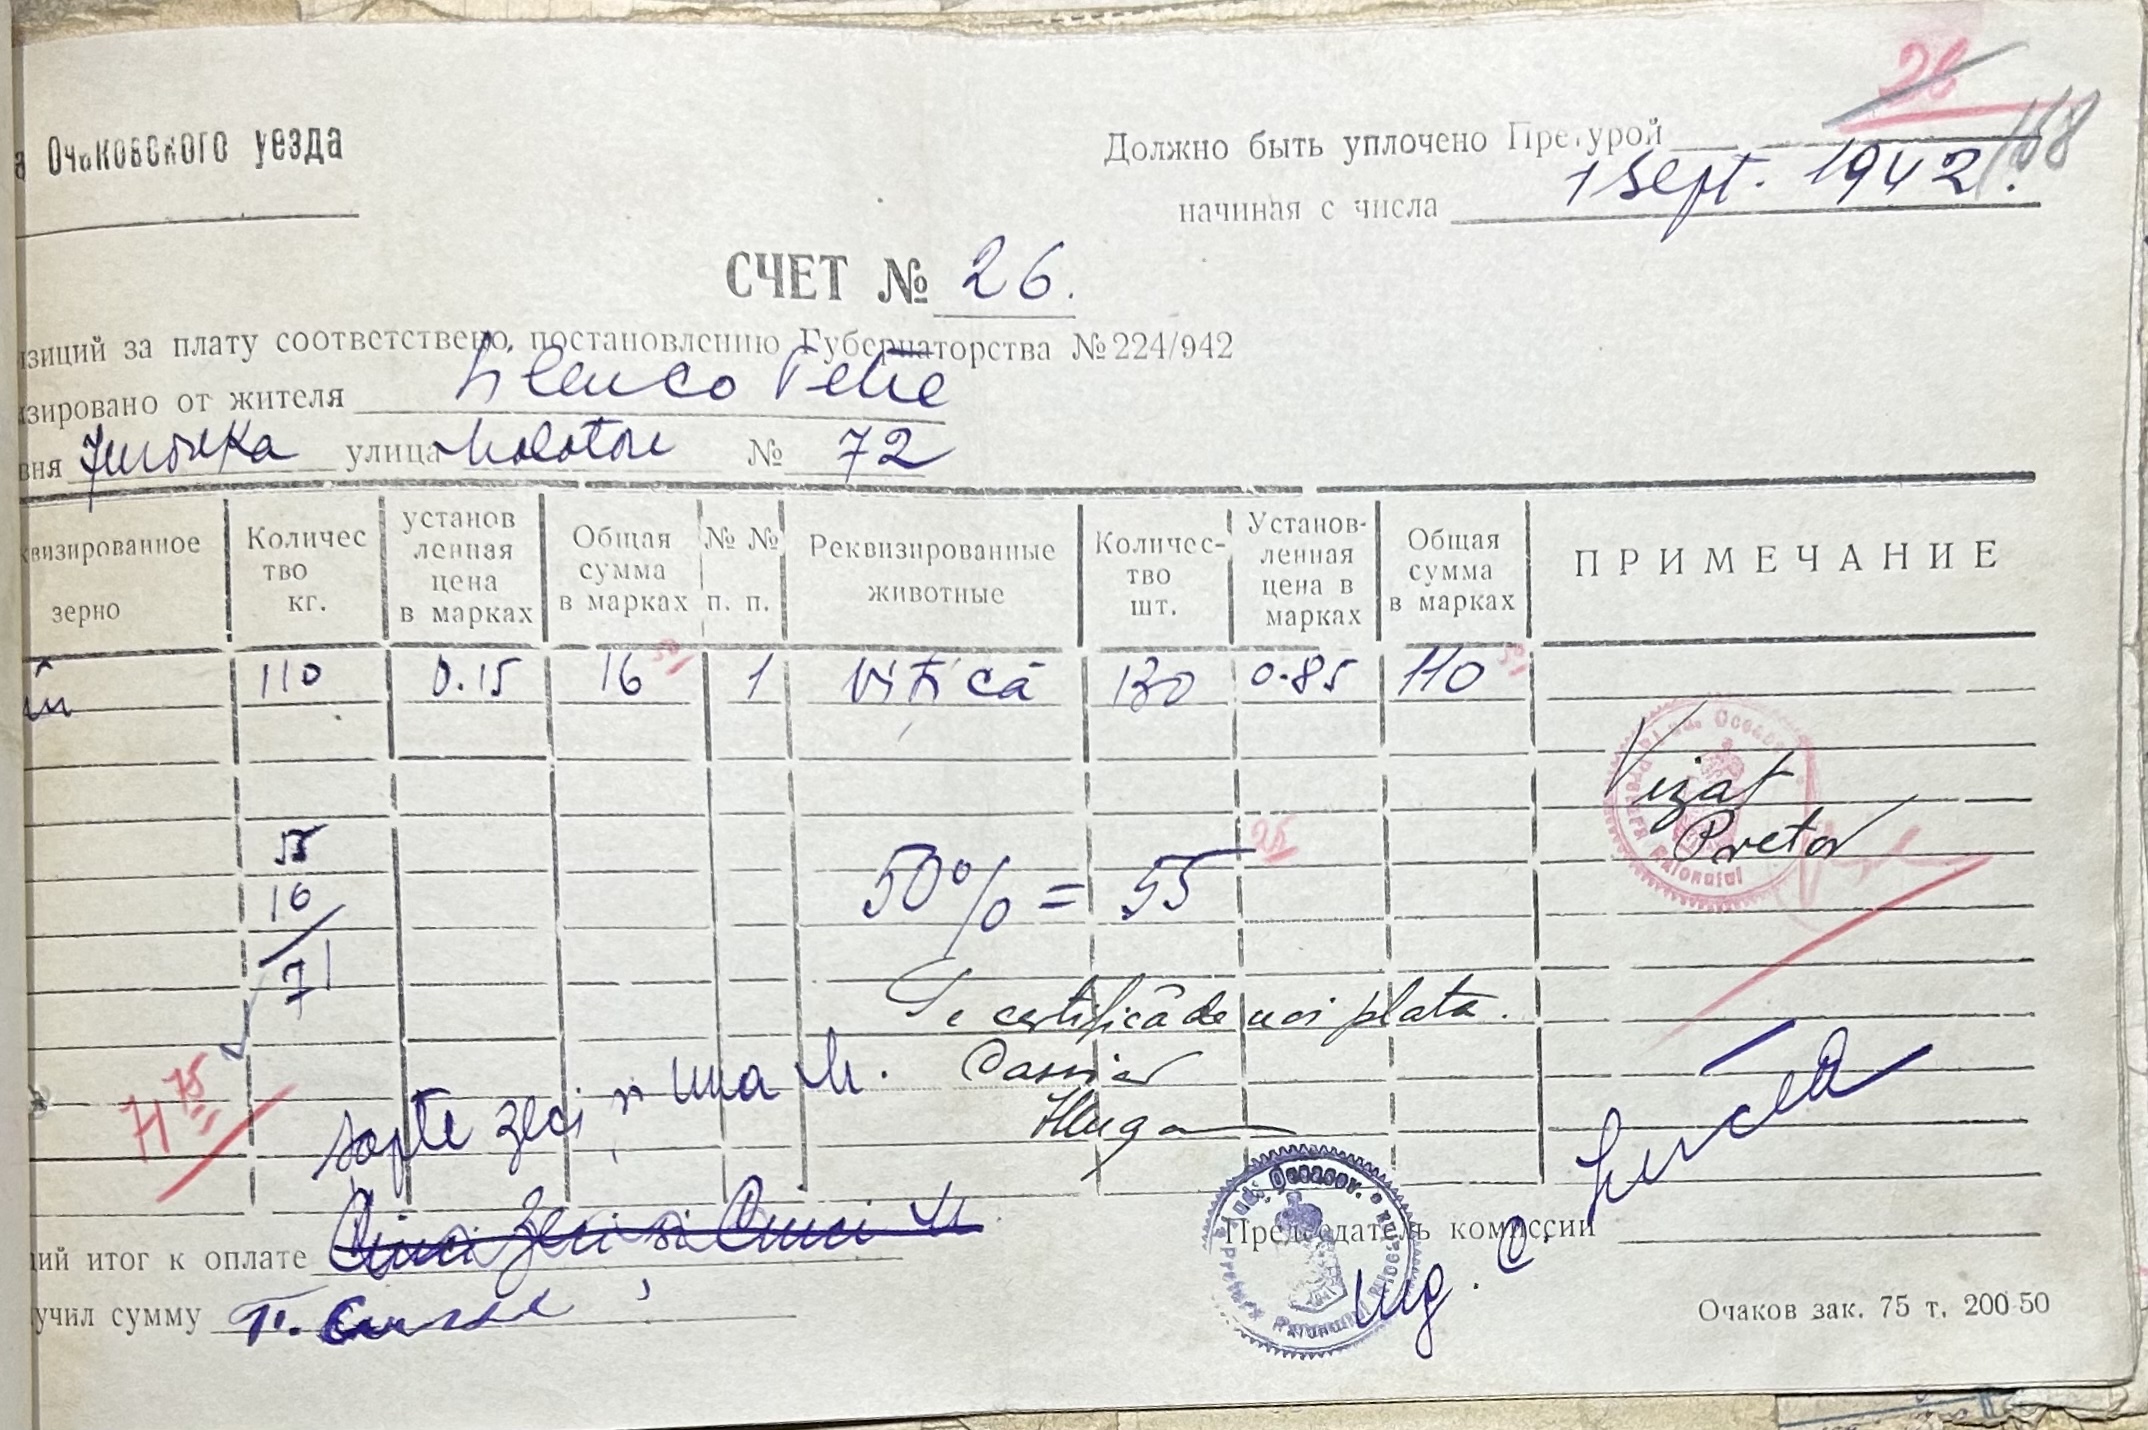 26
168
Очаковского уезда
Должно быть уплочено Претурой
начиная с числа 1 Sept. 1942.
СЧЕТ № 26.
изиций за плату соответствено, постановлению Губернаторства № 224/942
изировано от жителя Petre
вня улица Molotov № 72
квизированное зерно
Количес тво кг.
установ ленная цена в марках
Общая сумма в марках
№ № п. п.
Реквизированные животные
Количес- тво шт.
Установ- ленная цена в марках
Общая сумма в марках
ПРИМЕЧАНИЕ
în 110 0.15 16 50 1 vițică 130 0.85 110 50
Vizat
Pretor
55
16
71
50% = 55 25
Se certifică de noi plata.
Cassier
71 75
șapte zeci și una M.
Cinci zeci si Cinci M
ий итог к оплате
учил сумму
Председатель комиссии
Ing. C.
Очаков зак. 75 т. 200-50